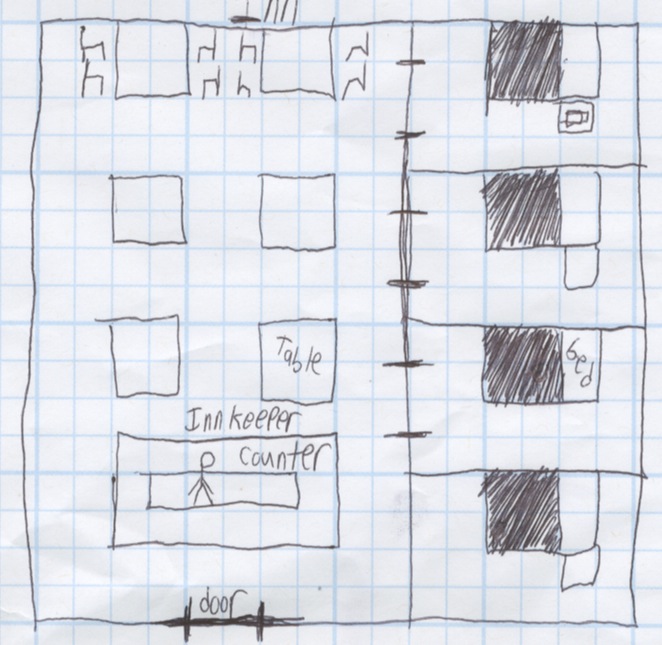 Table
Bed
Innkeeper
counter
door